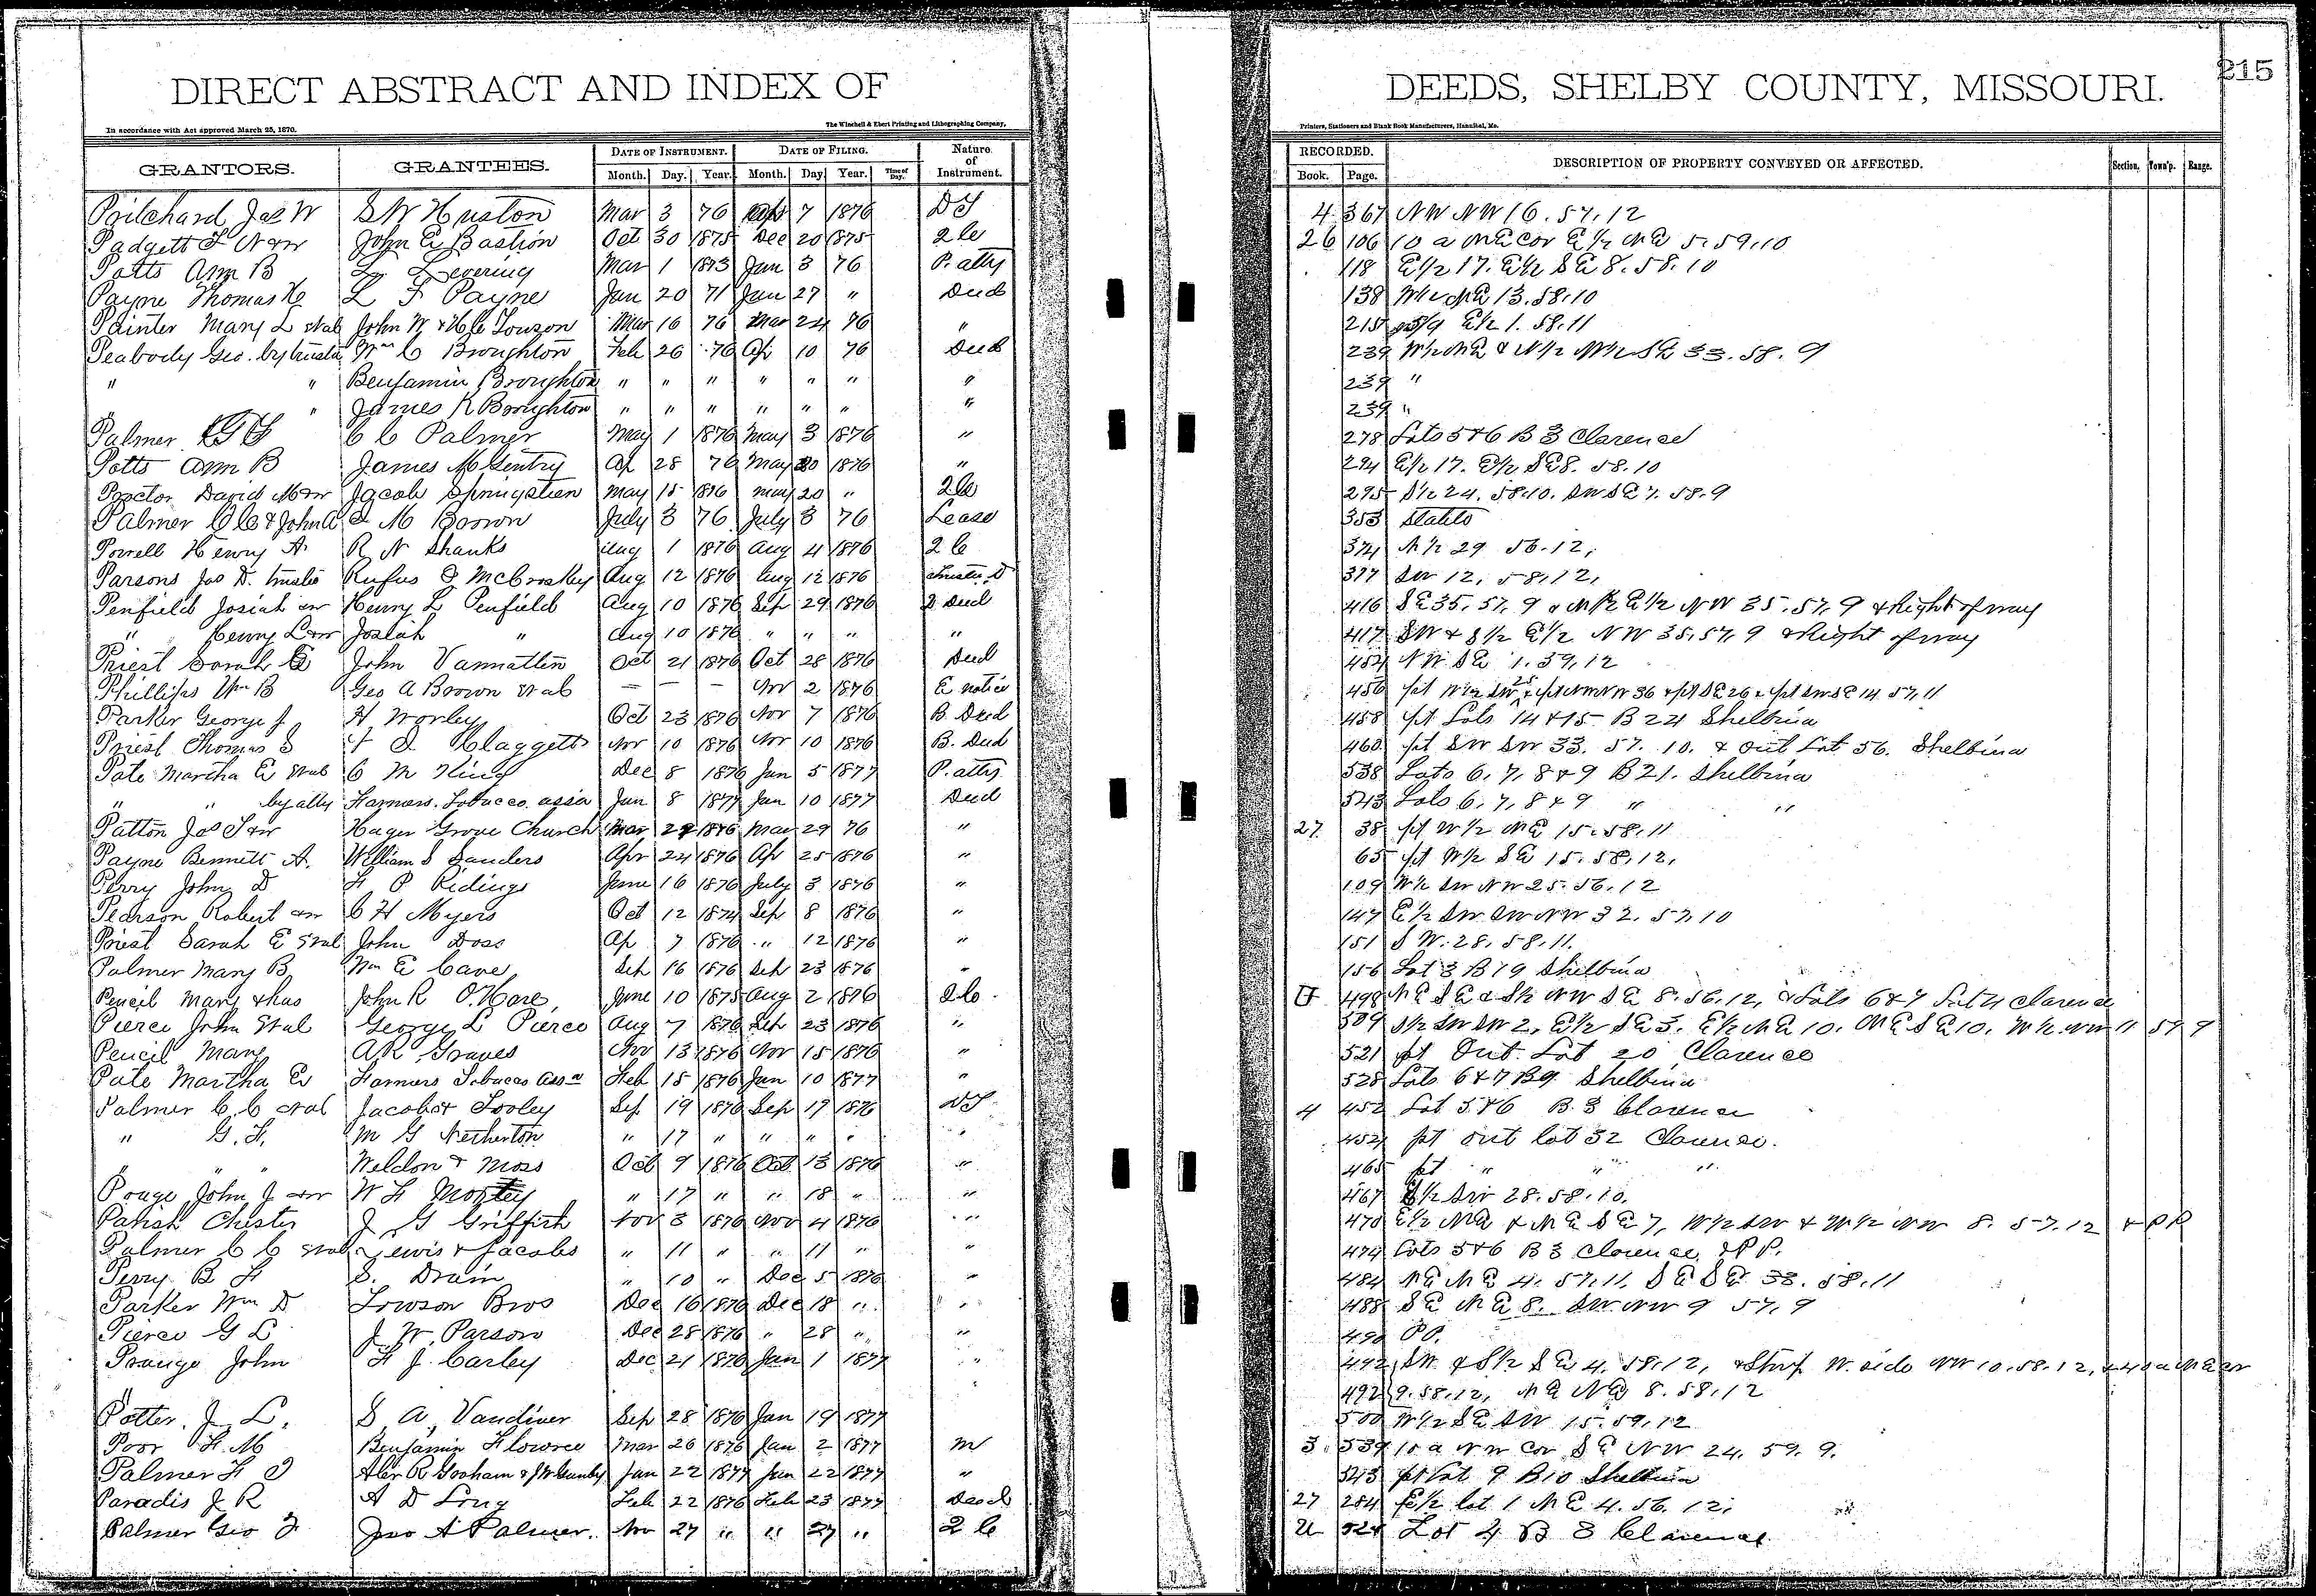 215
DIRECT ABSTRACT AND INDEX OF DEEDS, SHELBY COUNTY, MISSOURI.
In accordance with Act approved March 25, 1870. The Winchell & Ebert Printing and Lithographing Company, Printers, Stationers and Blank Book Manufacturers, Hannibal, Mo.
GRANTORS. GRANTEES. DATE OF INSTRUMENT. DATE OF FILING. Nature of Instrument. RECORDED. DESCRIPTION OF PROPERTY CONVEYED OR AFFECTED. Section. Town'p. Range.
Month. Day. Year. Month. Day. Year. Time of Day. Book. Page.
Pritchard Jas W S W Huston Mar 3 76 Ap 7 1876 DT 4 367 NW NW 16. 57. 12
Padgett F N & w John E Bastion Oct 30 1875 Dec 20 1875 2 C 26 106 10 a NE cor E 1/2 NE 5. 59. 10
Potts Ann B Levering Mar 1 1873 Jan 3 76 P. atty 118 E 1/2 17. E 1/2 SE 8. 58. 10
Payne Thomas L F Payne Jan 20 71 Jan 27 " Deed 138 NE 13. 58. 10
Painter Mary L et al John W & Towson Mar 16 76 Mar 24 76 " 215 E 1/2 1. 58. 11
Peabody Geo. by trustee Wm C Broughton Feb 26 76 Ap 10 76 Deed 239 W 1/2 NE & N 1/2 SE 33. 58. 9
" " Benjamin Broughton " " " " " " " 239 "
" " James K Broughton " " " " " " " 239 "
Palmer G F C C Palmer May 1 1876 May 3 1876 " 278 Lots 5 & 6 B 3 Clarence
Potts Ann B James M Gentry Ap 28 76 May 20 1876 " 294 E 1/2 17. E 1/2 SE 8. 58. 10
Proctor David M & w Jacob Springstien May 15 1876 May 20 " 2 C 295 S 1/2 24. 58. 10. SW SE 7. 58. 9
Palmer C C & John A M Brown July 3 76 July 3 76 Lease 353 Stable
Powell Henry A. R N Shanks Aug 1 1876 Aug 4 1876 2 C 374 N 1/2 29 56. 12,
Parsons Jas D. trustee Rufus McCroskey Aug 12 1876 Aug 12 1876 Trustee D 377 SW 12, 58, 12,
Penfield Josiah & w Henry L Penfield Aug 10 1876 Sep 29 1876 Deed 416 SE 35. 57. 9 & N 1/2 E 1/2 NW 35. 57. 9 & Right of way
" Henry L & w Josiah " Aug 10 1876 " " " " 417 SW & S 1/2 E 1/2 NW 35. 57. 9 & Right of way
Priest Sarah E John Vannatten Oct 21 1876 Oct 28 1876 Deed 454 NW SE 1. 59. 12
Phillips Wm B Geo A Brown et al — — — Nov 2 1876 E notice 456 pt W 1/2 SW 25 & pt NW NW 36 & pt SE 26 & pt SW SE 14. 57. 11
Parker George J H Worley Oct 23 1876 Nov 7 1876 B. Deed 458 pt Lots 14 & 15 B 24 Shelbina
Priest Thomas S Claggett Nov 10 1876 Nov 10 1876 B. Deed 460 pt SW SW 33. 57. 10. & out Lot 56. Shelbina
Pate Martha E et al C M King Dec 8 1876 Jan 5 1877 P. atty 538 Lots 6, 7, 8 & 9 B 21. Shelbina
" " by atty Farmers. Tobacco. assn Jan 8 1877 Jan 10 1877 Deed 543 Lots 6, 7, 8 & 9 " "
Patton Jas T & w Hager Grove Church Mar 29 1876 Mar 29 76 " 27. 38 pt W 1/2 NE 15. 58. 11
Payne Bennett A. William S Sanders Apr 24 1876 Ap 25 1876 " 65 pt W 1/2 SE 15. 58. 12,
Perry John D F P Ridings June 16 1876 July 3 1876 " 109 W 1/2 SW NW 25. 56. 12
Pearson Robert & w C H Myers Oct 12 1874 Sep 8 1876 " 147 E 1/2 SW SW NW 32. 57. 10
Priest Sarah E et al John Doss Ap 7 1876 " 12 1876 " 151 S W. 28. 58. 11.
Palmer Mary B Wm E Cave Sep 16 1876 Sep 23 1876 " 156 Lot 3 B 19 Shelbina
Pencil Mary & hus John R O. Hare June 10 1875 Aug 2 1876 2 C 498 NE SE & S 1/2 NW SE 8. 56. 12, & Lots 6 & 7 Clarence
Pierce John et al George L Pierce Aug 7 1876 Sep 23 1876 " 509 S 1/2 SW SW 2, E 1/2 SE 3. E 1/2 NE 10. NE SE 10. W 1/2 NW 11 57 9
Pencil Mary A R Graves Nov 13 1876 Nov 15 1876 " 521 pt Out Lot 20 Clarence
Pate Martha E Farmers Tobacco Assn Feb 15 1876 Jan 10 1877 " 528 Lots 6 & 7 B 9 Shelbina
Palmer C C et al Jacobs & Tooley Sep 19 1876 Sep 19 1876 DT 4 452 Lot 5 & 6 B. 3 Clarence
" G. F. M G Netherton " 17 " " " " " 452 pt out lot 32 Clarence.
" " " Weldon & Moss Oct 9 1876 Oct 13 1876 " 465 pt " " "
Pouge John J & w W F " 17 " " 18 " " 467 1/2 SW 28. 58. 10,
Parish Chester J G Griffith Nov 3 1876 Nov 4 1876 " 470 E 1/2 NE & NE SE 7, W 1/2 SW & W 1/2 NW 8. 57. 12 & PP
Palmer C C et al Lewis & Jacobs " 11 " " 11 " " 474 Lots 5 & 6 B 3 Clarence & PP.
Perry B F S. Drain " 10 " Dec 5 1876 " 484 NE NE 4. 57. 11, SE SE 33. 58. 11
Parker Wm D Towson Bros Dec 16 1876 Dec 18 " " 488 SE NE 8. SW NW 9 57. 9
Pierce G L J W. Parson Dec 28 1876 " 28 " " 490 PP.
Prange John F J. Carley Dec 21 1876 Jan 1 1877 " 492 SW & S 1/2 SE 4. 58. 12, & Strip W. side NW 10. 58. 12, & 40 a NE cor
" " 492 9. 58. 12, NE NE 8. 58. 12
Potter. J. L. S. A. Vandiver Sep 28 1876 Jan 19 1877 500 W 1/2 SE SW 15. 59. 12
Poor F. M Benjamin Flowree Mar 26 1876 Jan 2 1877 M 3. 539 10 a NW cor SE NW 24. 59. 9.
Palmer F Alex R Gooham & J W Gunby Jan 22 1877 Jan 22 1877 " 543 pt Lot 9 B 10 Shelbina
Paradis J R A D Long Feb 22 1876 Feb 23 1877 Deed 27 284 E 1/2 lot 1 NE 4. 56. 12,
Palmer Geo F Jno A Palmer. Nov 27 " " 27 " 2 C U 524 Lot 4 B 3 Clarence